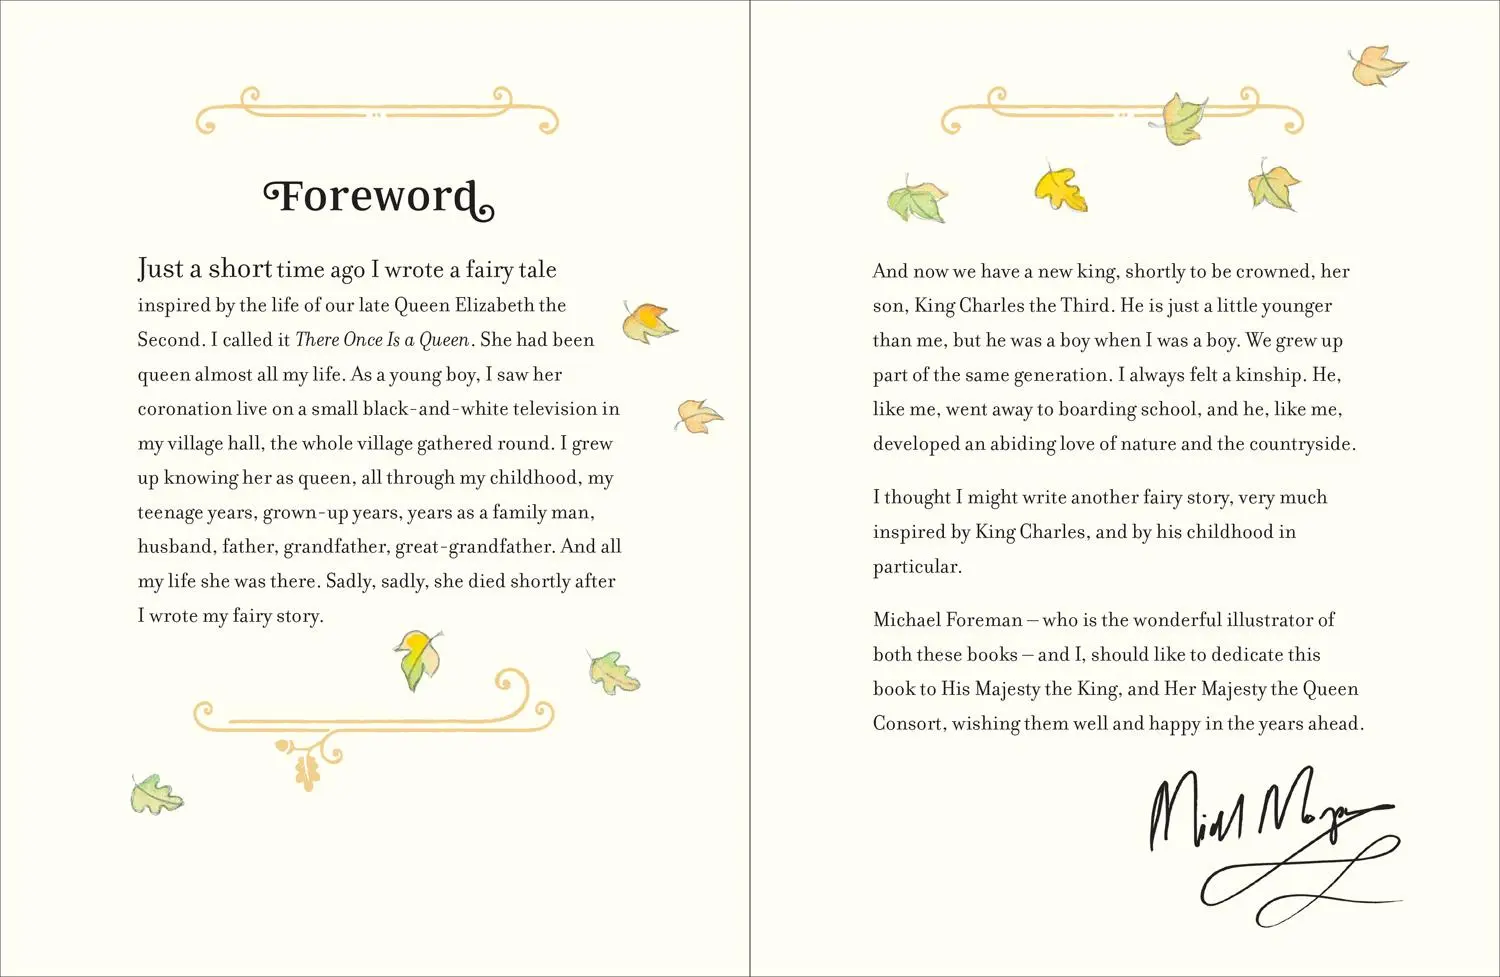 Foreword
Just a short time ago I wrote a fairy tale
inspired by the life of our late Queen Elizabeth the
Second. I called it There Once Is a Queen. She had been
queen almost all my life. As a young boy, I saw her
coronation live on a small black-and-white television in
my village hall, the whole village gathered round. I grew
up knowing her as queen, all through my childhood, my
teenage years, grown-up years, years as a family man,
husband, father, grandfather, great-grandfather. And all
my life she was there. Sadly, sadly, she died shortly after
I wrote my fairy story.
And now we have a new king, shortly to be crowned, her
son, King Charles the Third. He is just a little younger
than me, but he was a boy when I was a boy. We grew up
part of the same generation. I always felt a kinship. He,
like me, went away to boarding school, and he, like me,
developed an abiding love of nature and the countryside.
I thought I might write another fairy story, very much
inspired by King Charles, and by his childhood in
particular.
Michael Foreman – who is the wonderful illustrator of
both these books – and I, should like to dedicate this
book to His Majesty the King, and Her Majesty the Queen
Consort, wishing them well and happy in the years ahead.